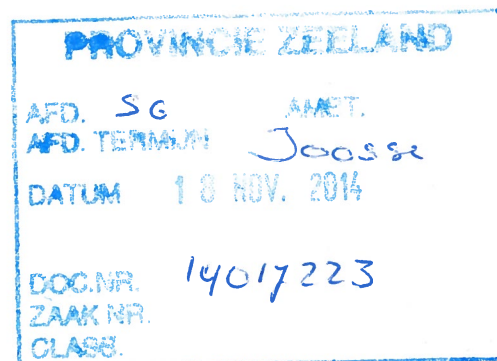 PROVINCIE ZEELAND
AFD. SG AMBT.
AFD. TERMIJN Joosse
DATUM 18 NOV. 2014
DOC.NR. 14017223
ZAAK NR.
CLASS.